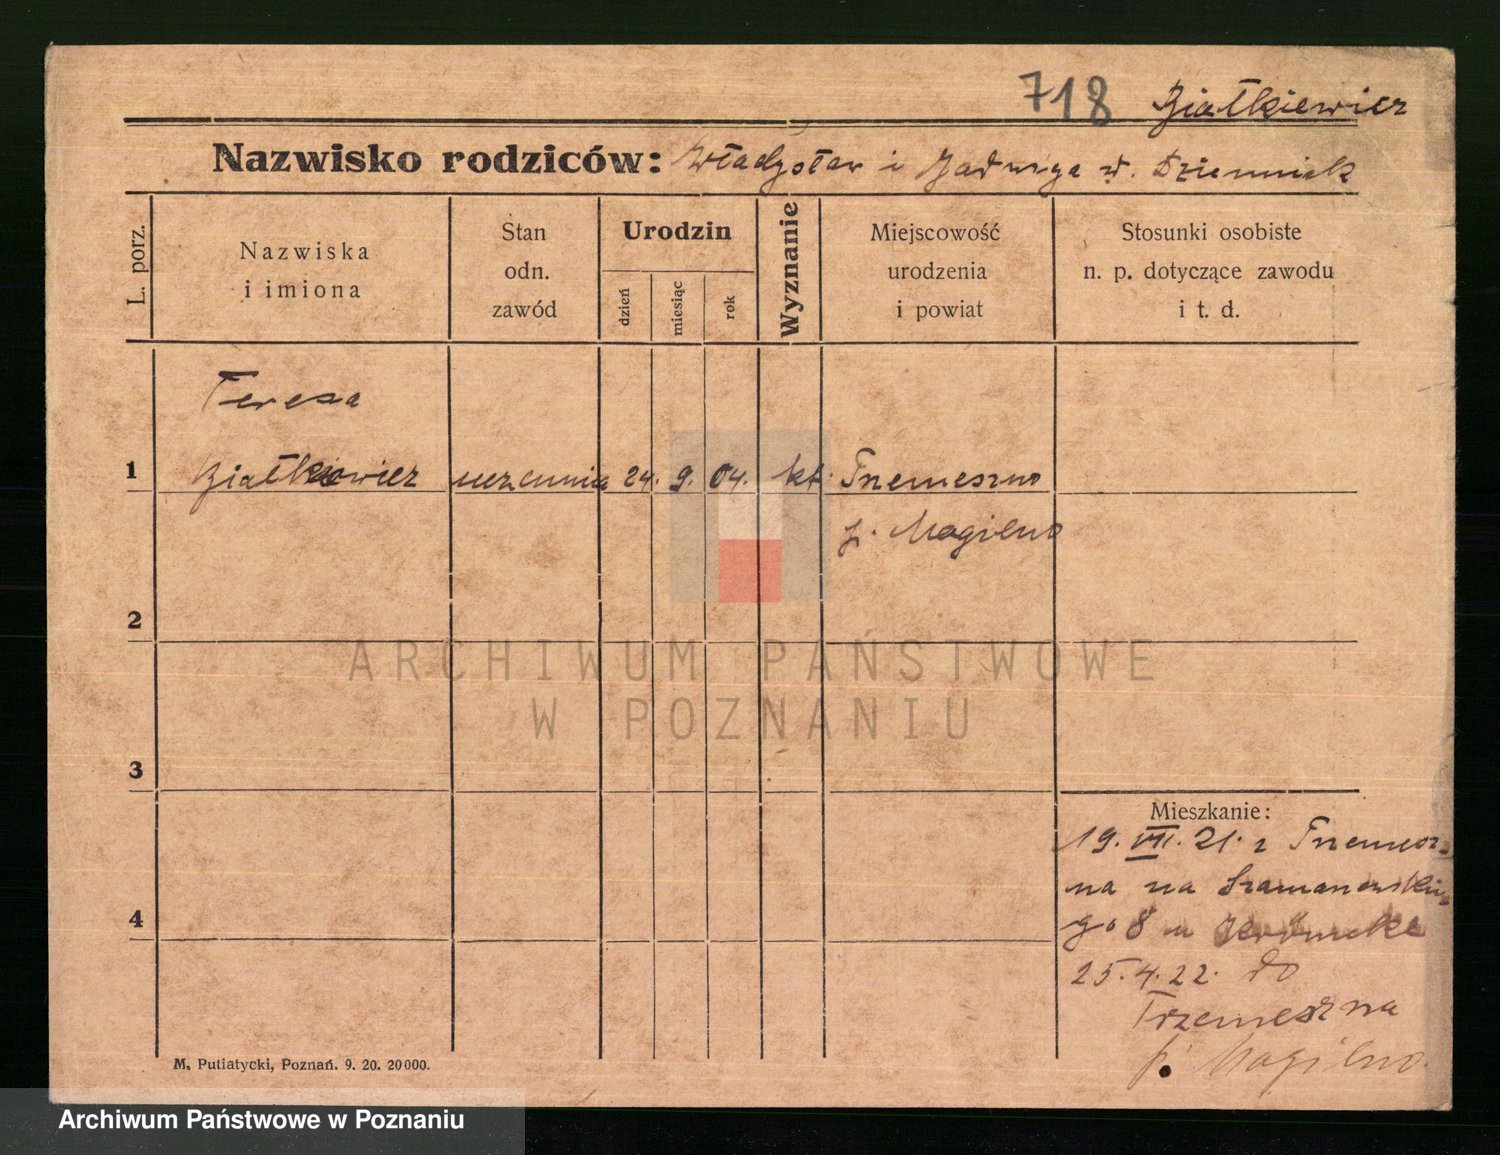 718 Białkiewicz
Nazwisko rodziców: Władysław i Jadwiga d. Dziennick
L. porz.
Nazwiska
i imiona
Stan
odn.
zawód
Urodzin
dzień
miesiąc
rok
Wyznanie
Miejscowość
urodzenia
i powiat
Stosunki osobiste
n. p. dotyczące zawodu
i t. d.
Teresa
1 Białkiewicz uczennica 24. 9. 04. kt. Trzemeszno
p. Mogilno
2
3
4
Mieszkanie:
19. VII. 21. z Trzemesz-
na na Szamarzewskie-
go 8 u
25. 4. 22. do
Trzemeszna
p. Mogilno.
M. Putiatycki, Poznań. 9. 20. 20000.
ARCHIWUM PAŃSTWOWE
W POZNANIU
Archiwum Państwowe w Poznaniu